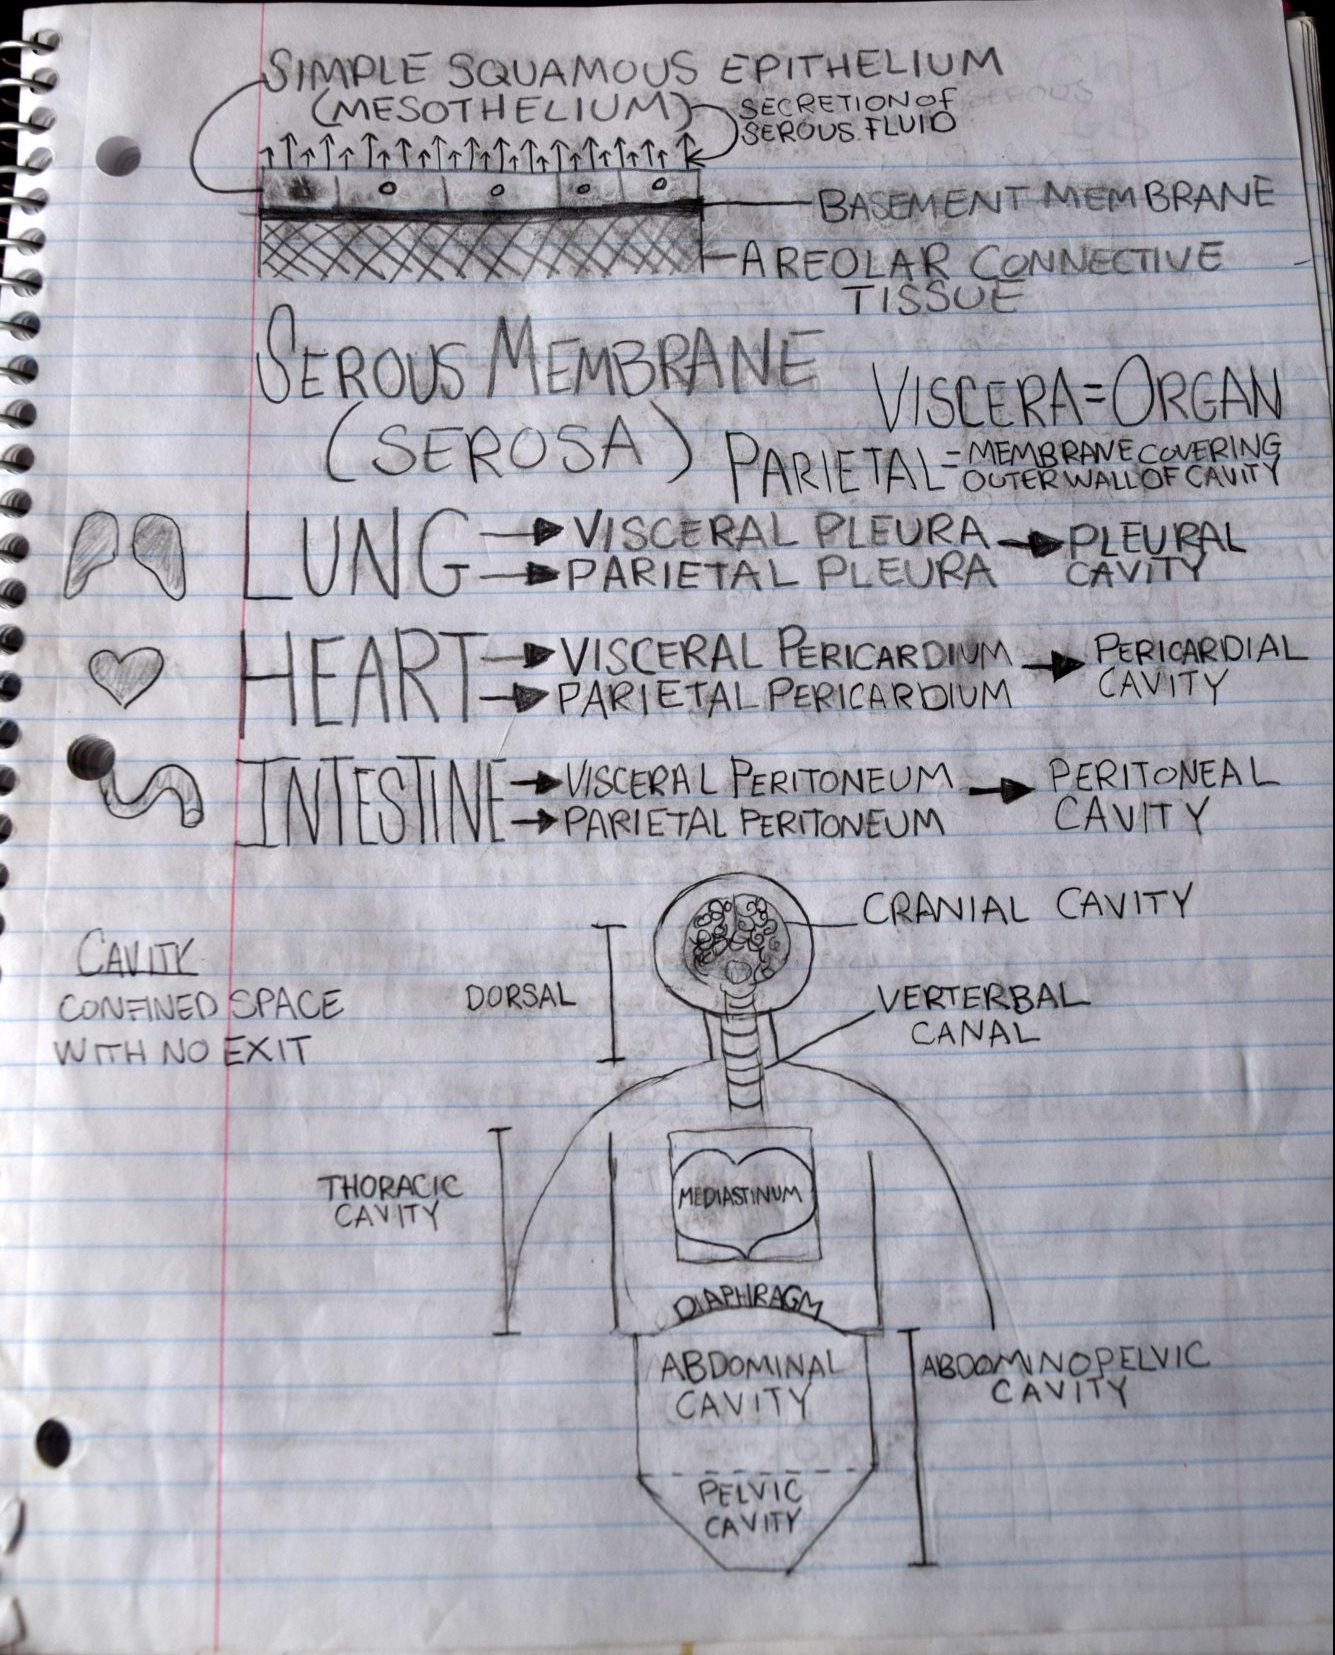 SIMPLE SQUAMOUS EPITHELIUM
(MESOTHELIUM)
SECRETION OF
SEROUS FLUID
BASEMENT MEMBRANE
AREOLAR CONNECTIVE
TISSUE
SEROUS MEMBRANE
(SEROSA)
VISCERA=ORGAN
PARIETAL=MEMBRANE COVERING
OUTER WALL OF CAVITY
LUNG → VISCERAL PLEURA → PLEURAL
→ PARIETAL PLEURA CAVITY
HEART → VISCERAL PERICARDIUM → PERICARDIAL
→ PARIETAL PERICARDIUM CAVITY
INTESTINE → VISCERAL PERITONEUM → PERITONEAL
→ PARIETAL PERITONEUM CAVITY
CRANIAL CAVITY
CAVITY
CONFINED SPACE
WITH NO EXIT
DORSAL
VERTERBAL
CANAL
THORACIC
CAVITY
MEDIASTINUM
DIAPHRAGM
ABDOMINAL
CAVITY
ABDOMINOPELVIC
CAVITY
PELVIC
CAVITY